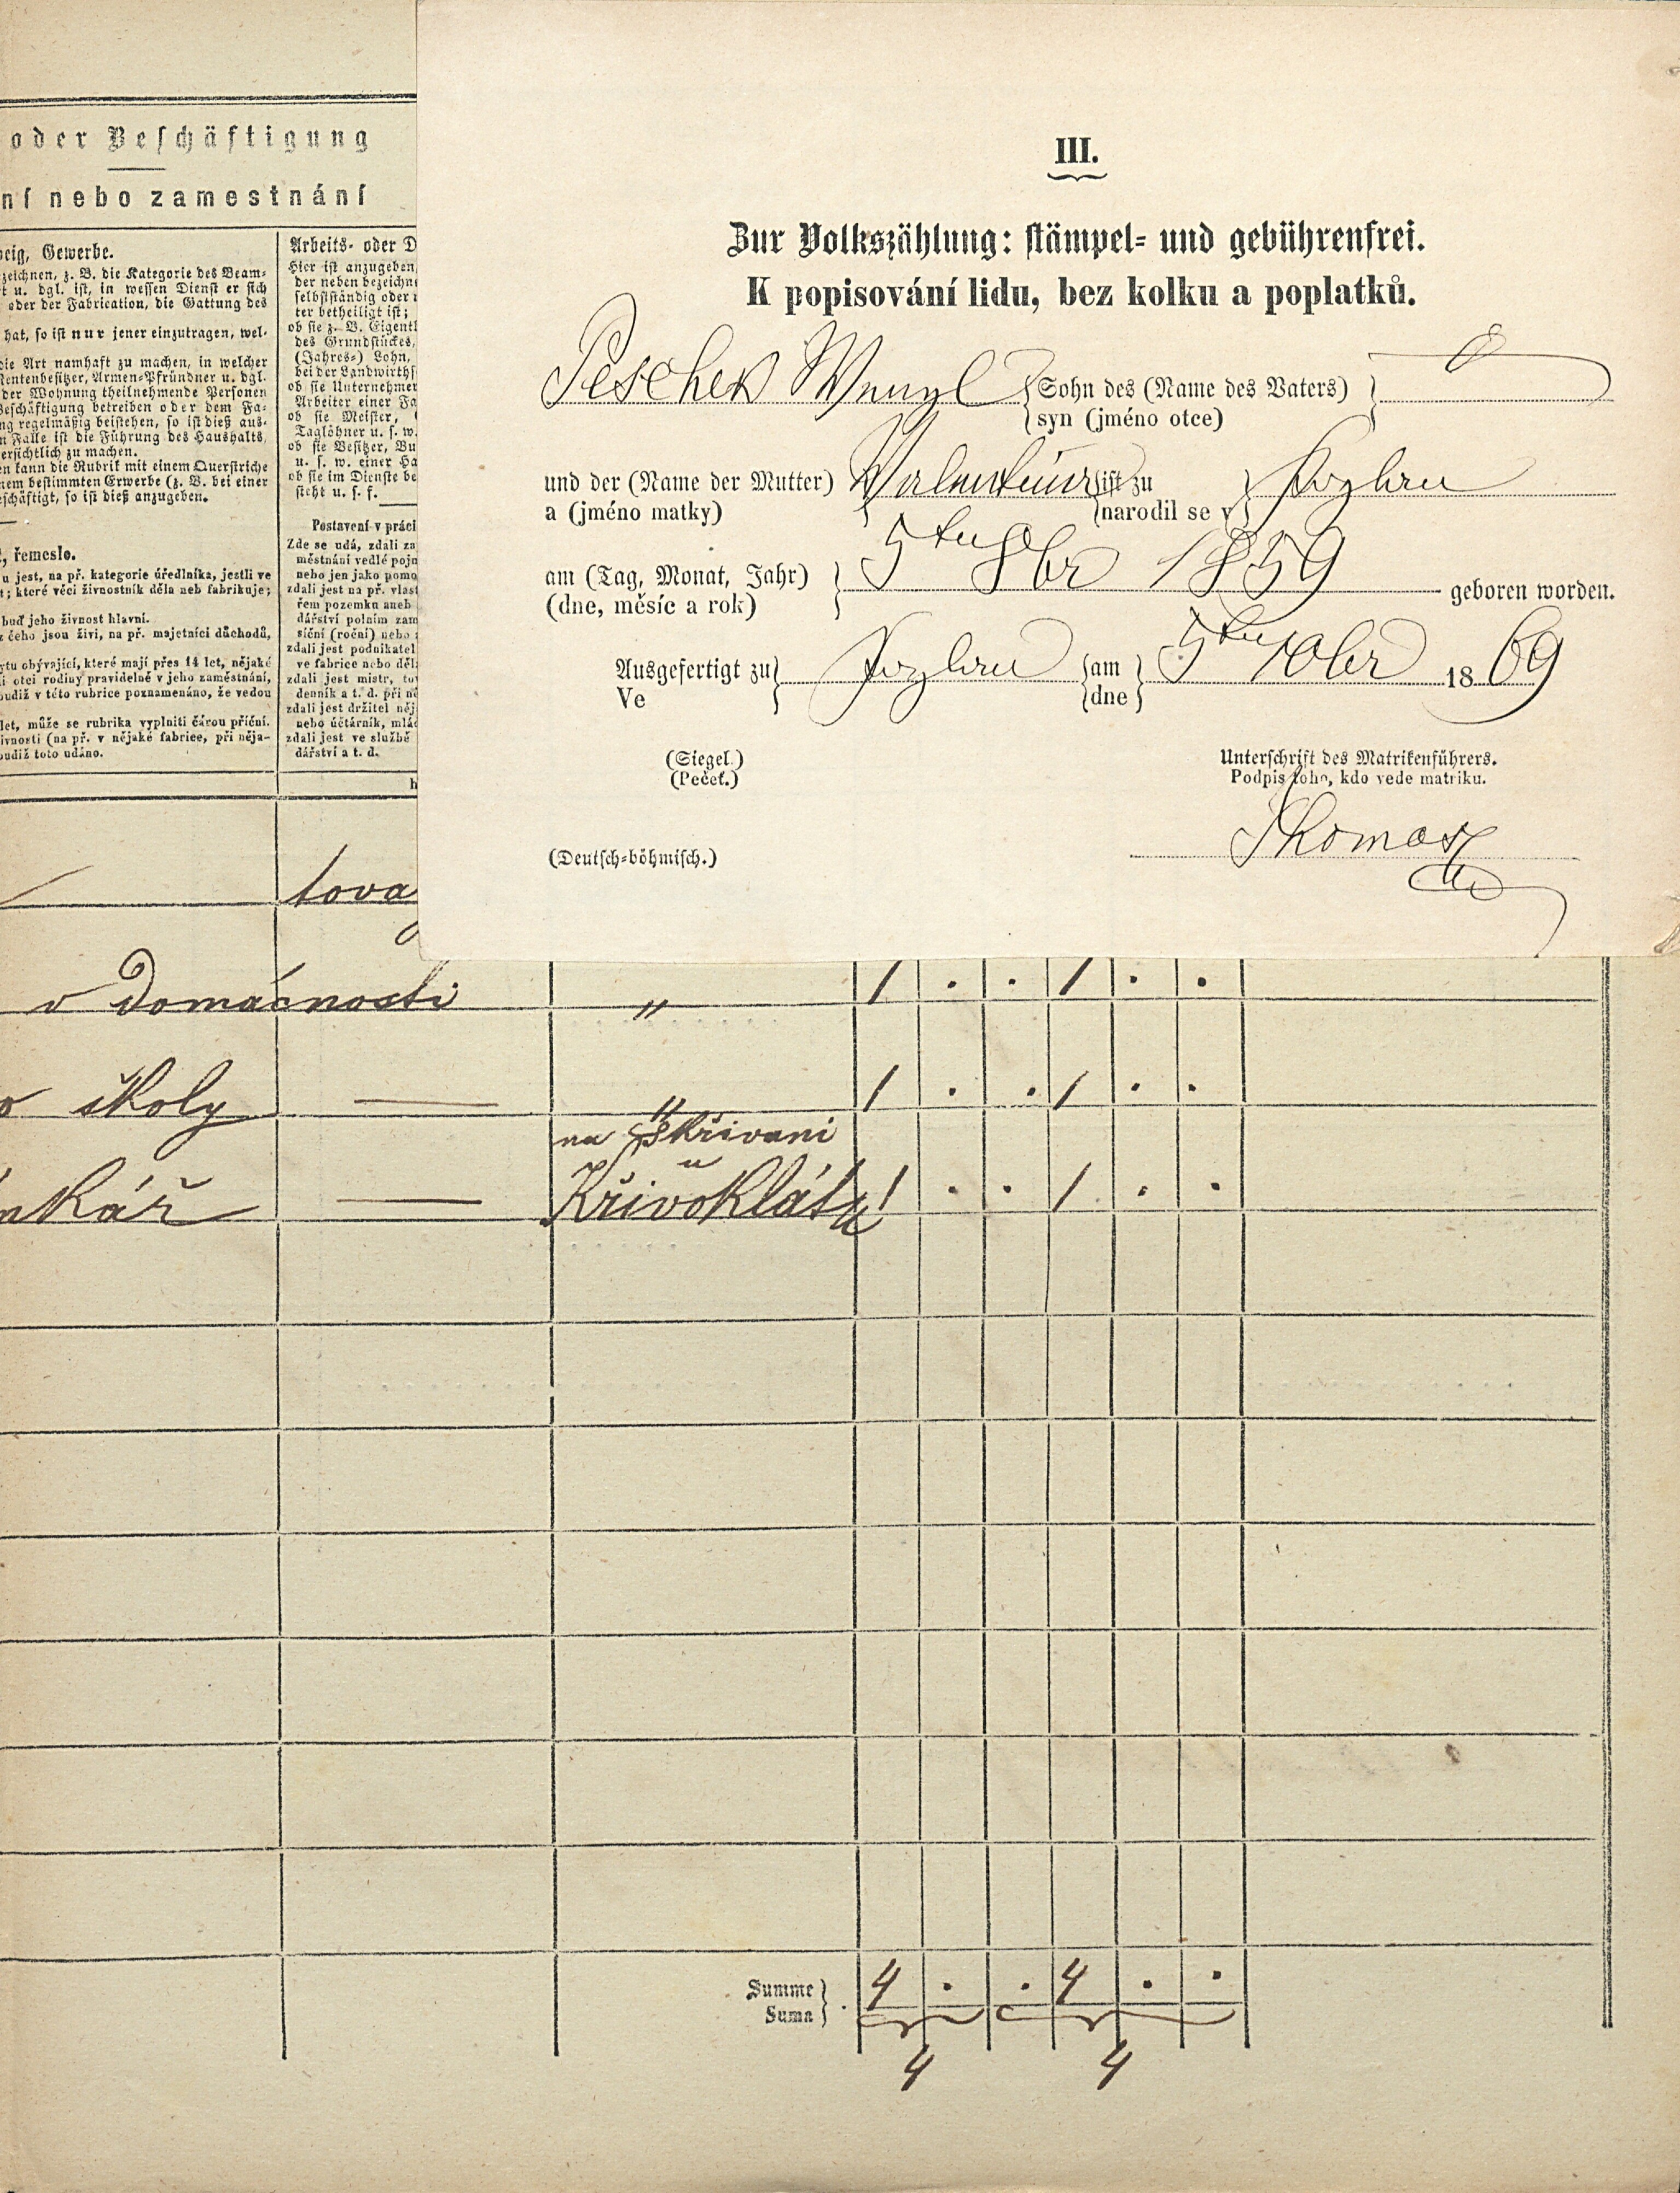 oder Beschäftigung
ní nebo zamestnání
zeig, Gewerbe.
zeichnen, z. B. die Kategorie des Beam-
t u. dgl. ist, in wessen Dienst er sich
oder der Fabrication, die Gattung des
hat, so ist nur jener einzutragen, wel-
die Art namhaft zu machen, in welcher
Rentenbesitzer, Armen-Pfründner u. dgl.
der Wohnung theilnehmende Personen
Beschäftigung betreiben oder dem Fa-
ng regelmäßig beistehen, so ist dieß aus-
n Falle ist die Führung des Haushalts
ersichtlich zu machen.
en kann die Rubrik mit einem Querstriche
nem bestimmten Erwerbe (z. B. bei einer
eschäftigt, so ist dieß anzugeben.
, řemeslo.
u jest, na př. kategorie úředlníka, jestli ve
t; které věci živnostník dělá neb fabrikuje;
buď jeho živnost hlavní.
z čeho jsou živi, na př. majetníci důchodů,
ytu obývající, které mají přes 14 let, nějaké
i otci rodiny pravidelně v jeho zaměstnání,
budiž v této rubrice poznamenáno, že vedou
let, může se rubrika vyplniti čárou příční.
ivnosti (na př. v nějaké fabrice, při něja-
budiž toto udáno.
Arbeits- oder D
Hier ist anzugeben,
der neben bezeichne
selbstständig oder
ter betheiligt ist;
ob sie z. B. Eigenth
des Grundstückes,
(Jahres-) Lohn,
bei der Landwirths
ob sie Unternehmer
Arbeiter einer Fa
ob sie Meister,
Taglöhner u. s. w.
ob sie Besitzer, Bu
u. s. w. einer Ha
ob sie im Dienste be
steht u. s. f.
Postavení v práci
Zde se udá, zdali za
městnání vedlé pojm
nebo jen jako pomo
zdali jest na př. vlast
řem pozemku aneb
dářství polním zam
síční (roční) nebo
zdali jest podnikatel
ve fabrice nebo děl
zdali jest mistr, tov
denník a t. d. při ně
zdali jest držitel něj
nebo účtárník, mlá
zdali jest ve službě
dářství a t. d.
h
III.
Zur Volkszählung: stämpel- und gebührenfrei.
K popisování lidu, bez kolku a poplatků.
Peschek Wenzl Sohn des (Name des Vaters)
syn (jméno otce)
und der (Name der Mutter) ist zu
a (jméno matky) narodil se v
am (Tag, Monat, Jahr) 5ten 8br 1859 geboren worden.
(dne, měsíc a rok)
Ausgefertigt zu am 5ten 10br 1869
Ve dne
(Siegel.) Unterschrift des Matrikenführers.
(Pečeť.) Podpis toho, kdo vede matriku.
Thomas
(Deutsch-böhmisch.)
tova
v domácnosti " 1 . . 1 . .
školy — " 1 . . 1 . .
na Skřivani
u
kář — Křivoklátu 1 . . 1 . .
Summe 4 . . 4 . .
Suma
4 4